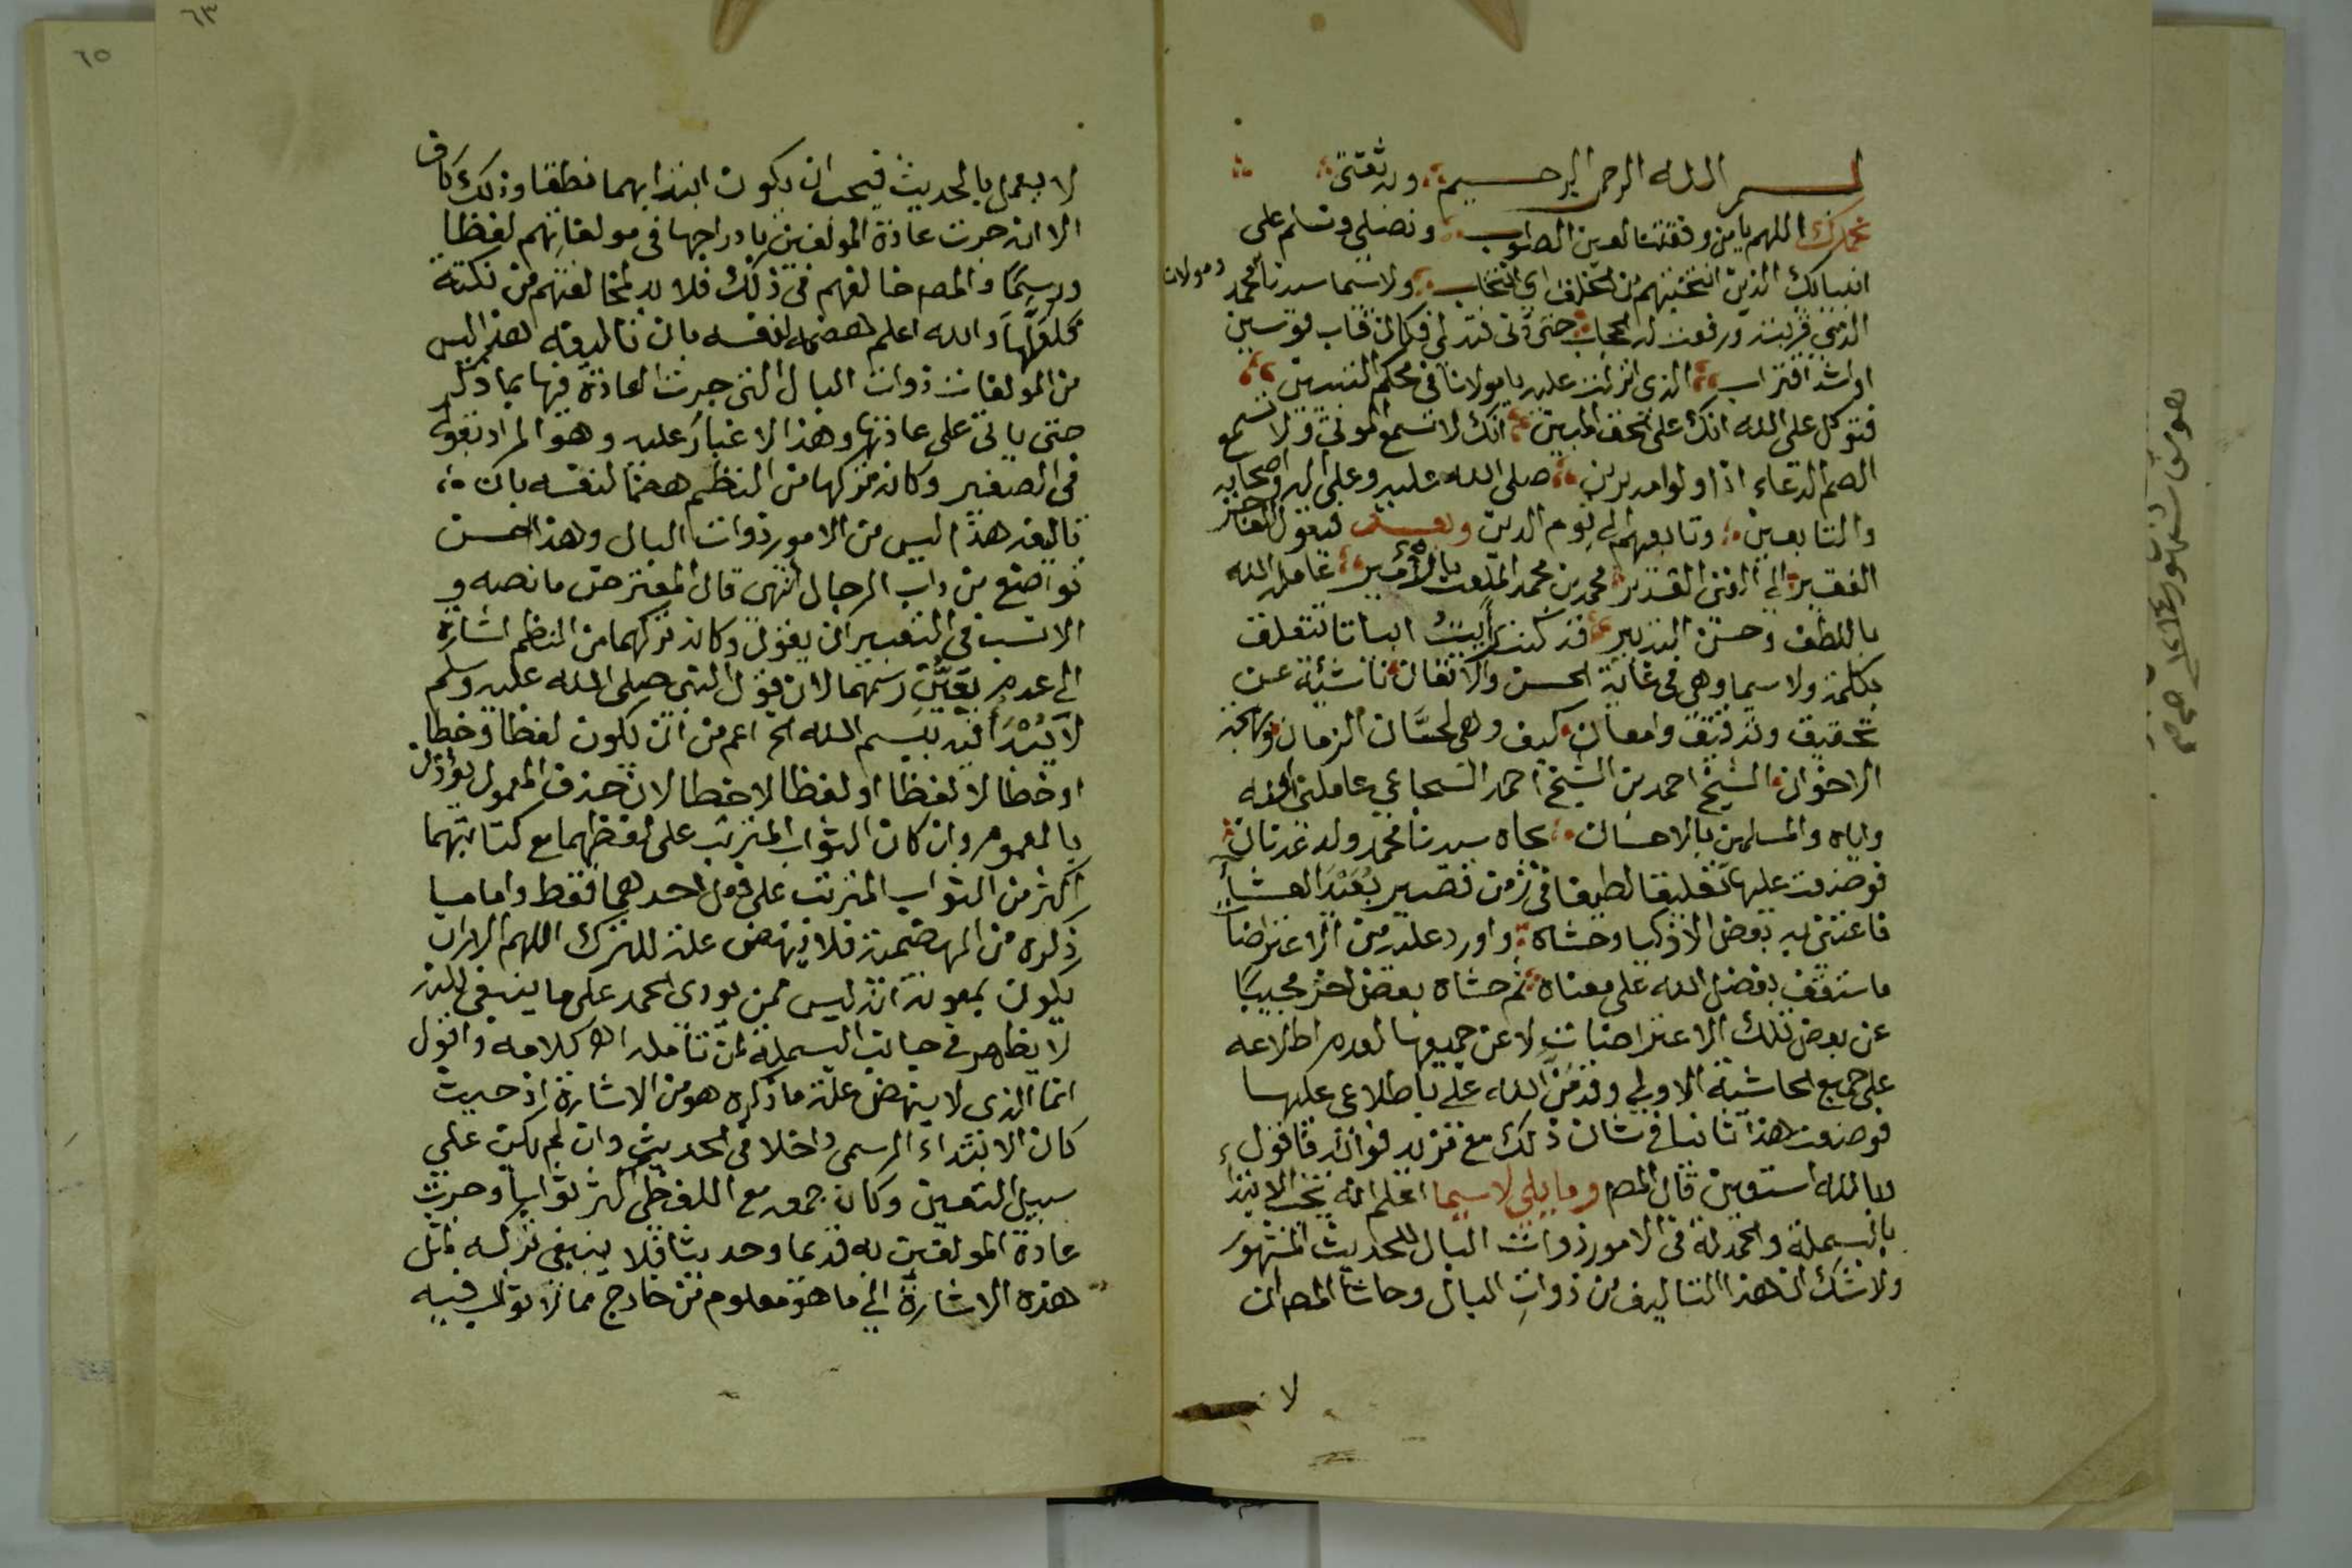 بسم الله الرحمن الرحيم وبه ثقتى
نحمدك اللهم يا من وفقتنا لعين الصواب ونصلى ونسلم على
انبيائك الذين انتخبتهم من الخلق اي انتخاب ولاسيما سيدنا محمد ومولانا
الذى قربته ورفعت له الحجاب حتى دنى فتدلى فكان قاب قوسين
او اشد اقتراب الذى انزلت عليه يا مولانا فى محكم التبيين
فتوكل على الله انك على الحق المبين انك لا تسمع الموتى ولا تسمع
الصم الدعاء اذا ولوا مدبرين صلى الله عليه وعلى اله واصحابه
والتابعين وتابعيهم الى يوم الدين وبعد فيقول العاجز
الفقير الى الغنى القدير محمد بن محمد الملقب بالامير عامله الله
باللطف وحسن التدبير قد كنت رأيت ابياتا تتعلق
بكلمة ولاسيما وهى فى غاية الحسن والاتقان ناشئة عن
تحقيق وتدقيق وامعان كيف وهى لحسان الزمان وبهجة
الاخوان الشيخ احمد بن الشيخ احمد السجاعي عاملنى الله
واياه والمسلمين بالاحسان بجاه سيدنا محمد ولد عدنان
فوضعت عليها تعليقا لطيفا فى زمن قصير بعيد العشا
فاعتنى به بعض الاذكيا وحشاه واورد عليه من الاعتراضات
ما ستقف بفضل الله على معناه ثم حشاه بعض اخر مجيبا
عن بعض تلك الاعتراضات لا عن جميعها لعدم اطلاعه
على جميع الحاشية الاولى وقد من الله على باطلاعى عليها
فوضعت هذا ثانيا فى شان ذلك مع مزيد فوائد فاقول
بالله استعين قال المصـ وما يلى لاسيما اعلم انه يجب الابتدا
بالبسملة والحمدلة فى الامور ذوات البال للحديث المشهور
ولا شك ان هذا التاليف من ذوات البال وحاشا المصـ ان
لا
لا يعمل بالحديث فيجب ان يكون ابتدا بهما نطقا وذلك كاف
الا انه جرت عادة المولفين بادراجها فى مولفاتهم لفظا
ورسما والمصـ خالفهم فى ذلك فلا بد لمخالفتهم من نكتة
فلعلها والله اعلم هضمه لنفسه بان تاليفه هذا ليس
من المولفات ذوات البال التى جرت العادة فيها بما ذكر
حتى ياتى على عادتها وهذا لا غبار عليه وهو المراد بقوله
فى الصغير وكانه تركها من النظم هضما لنفسه بان
تاليفه هذا ليس من الامور ذوات البال وهذا احسن
تواضع من داب الرجال انتهى قال المعترض ما نصه و
الانسب فى التعبير ان يقول وكانه تركهما من النظم اشارة
الى عدم تعين رسمهما لان قول النبى صلى الله عليه وسلم
لا يبدأ فيه ببسم الله الخ اعم من ان يكون لفظا وخطا
او خطا لا لفظا او لفظا لا خطا لان حذف المعمول يؤذن
بالعموم وان كان الثواب المترتب على لفظهما مع كتابتهما
اكثر من الثواب المترتب على فعل احدهما فقط واما ما
ذكره من الهضمية فلا ينهض علة للترك اللهم الا ان
يكون بمعونة انه ليس ممن يودى الحمد على ما ينبغى لكنه
لا يظهر فى جانب البسملة لمن تامله اهـ كلامه واقول
انما الذى لا ينهض علة ما ذكره هو من الاشارة اذ حيث
كان الابتداء الرسمى داخلا فى الحديث وان لم يكن على
سبيل التعين وكان جمعه مع اللفظى اكثر ثوابا وجرت
عادة المولفين به قديما وحديثا فلا ينبغى تركه لمثل
هذه الاشارة الى ما هو معلوم من خارج مما لا ثواب فيه
٦٣
٦٥